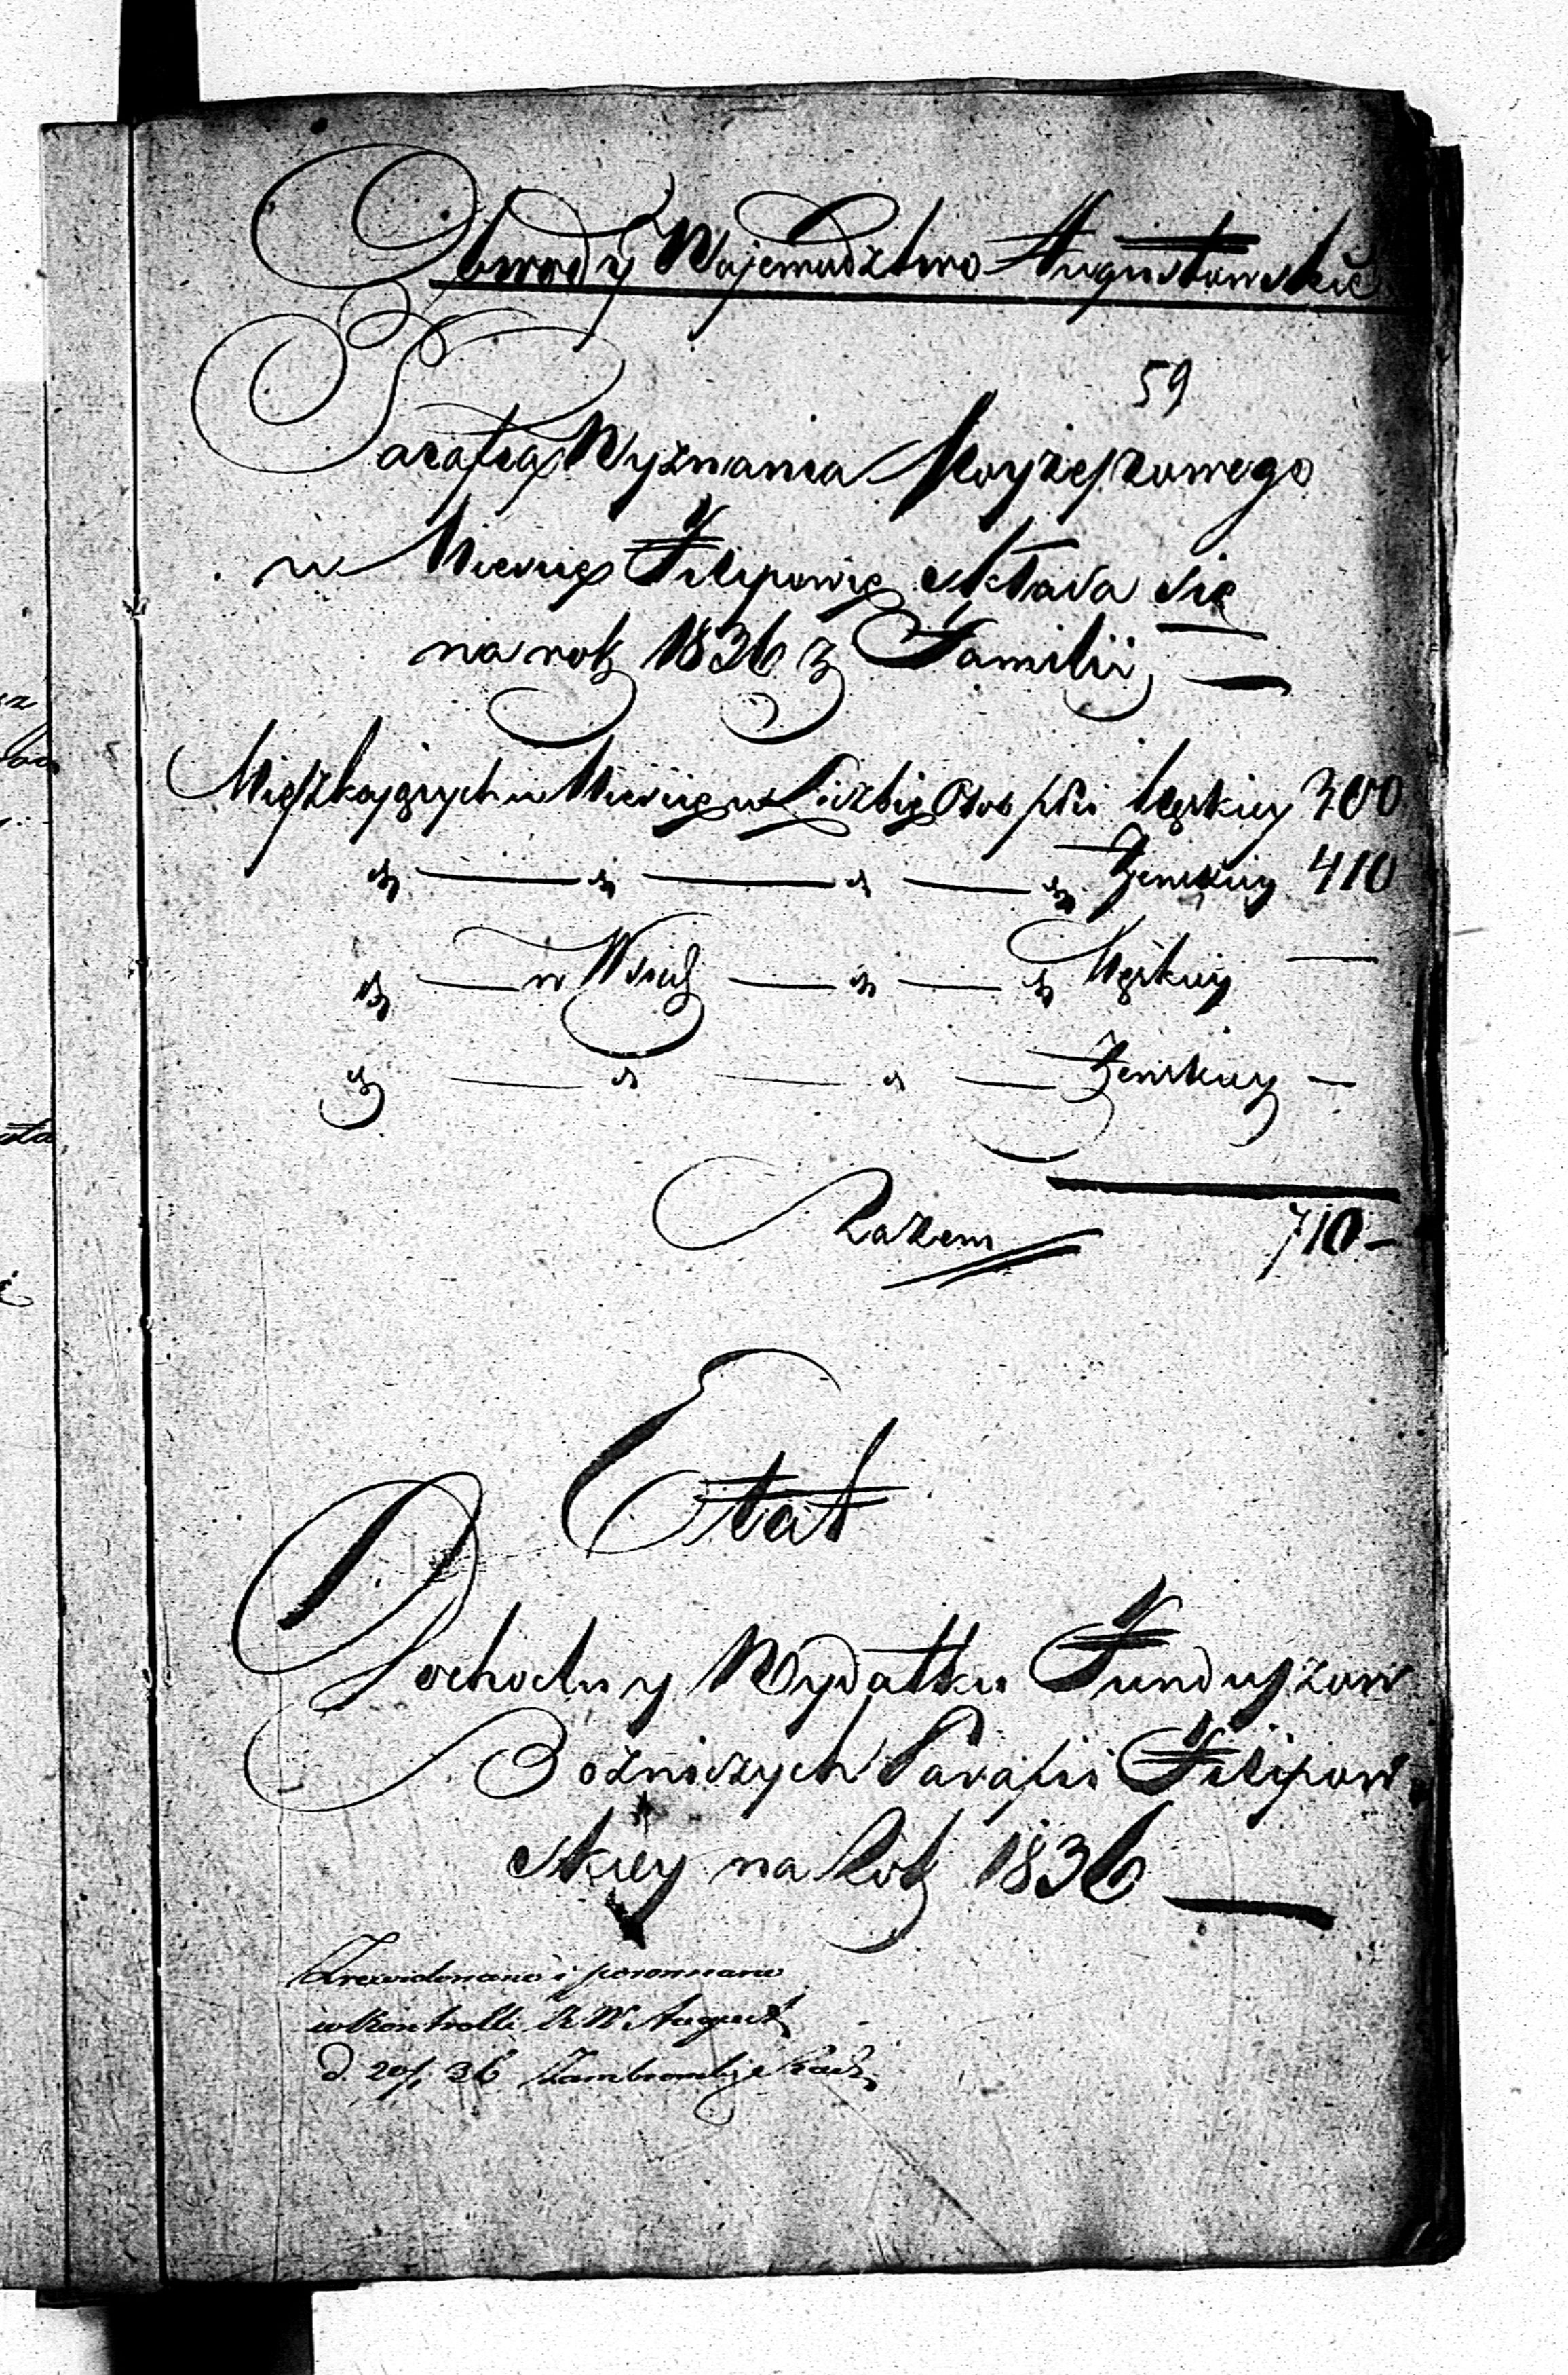 Obwody Wojewudztwo Augustowskie
59
Parafia Wyznania Moyżeszowego
w Miescie Filipowie składa się
na rok 1836 z Familii
Mięszkaiących w Miescie w Liczbie Osob płci Męskiey 300
" — " — " — " Zenskiey 410
" — w Wsiach — " — " Męskiey —
" — " — " — Zenskiey —
Razem 710 –
Etat
Dochodu y Wydatku Funduszow
Bożniczych Parafii Filipow
skiey na Rok 1836
Zrewidowano i porownano
w Kontrolli K W August
d. 20/1 36